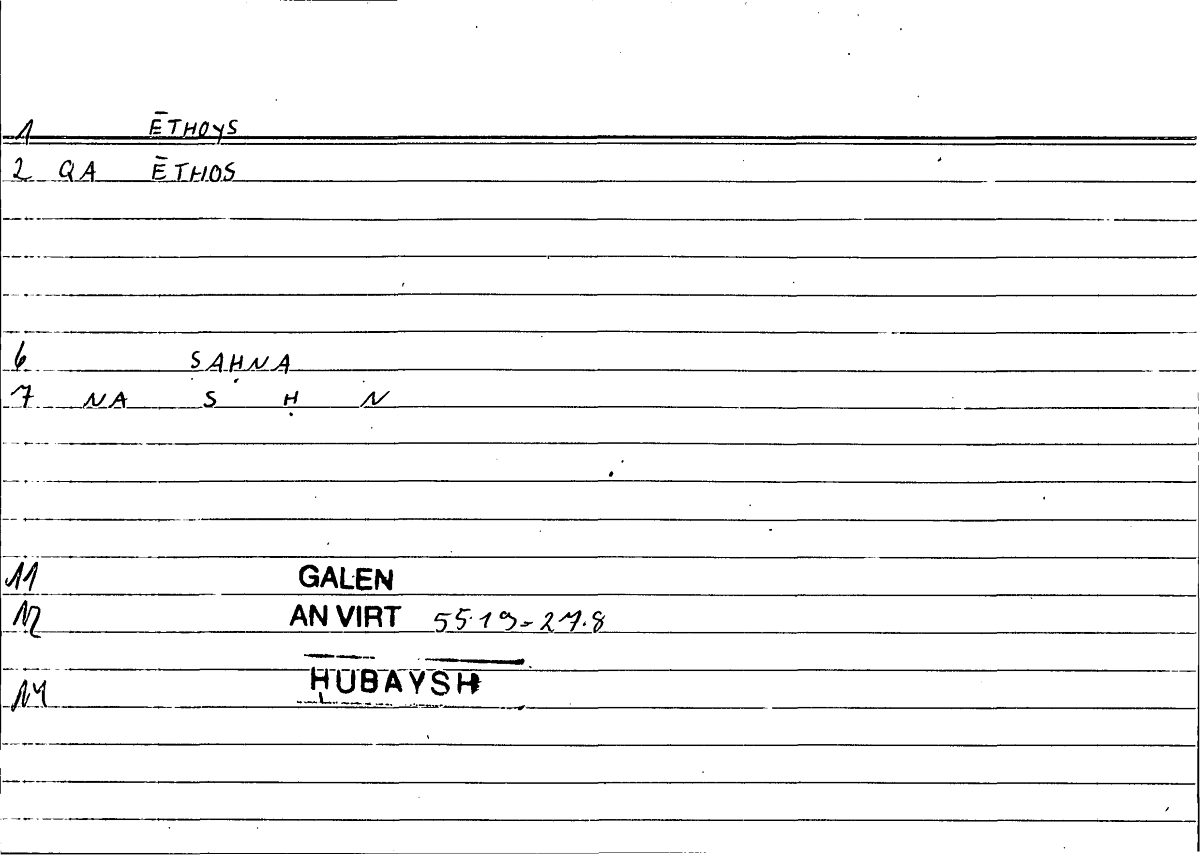 1 ĒTHOYS
2 QA ĒTHOS
6 SAḤNA
7 NA S Ḥ N
11 GALEN
12 AN VIRT 55.19-27.8
14 HUBAYSH